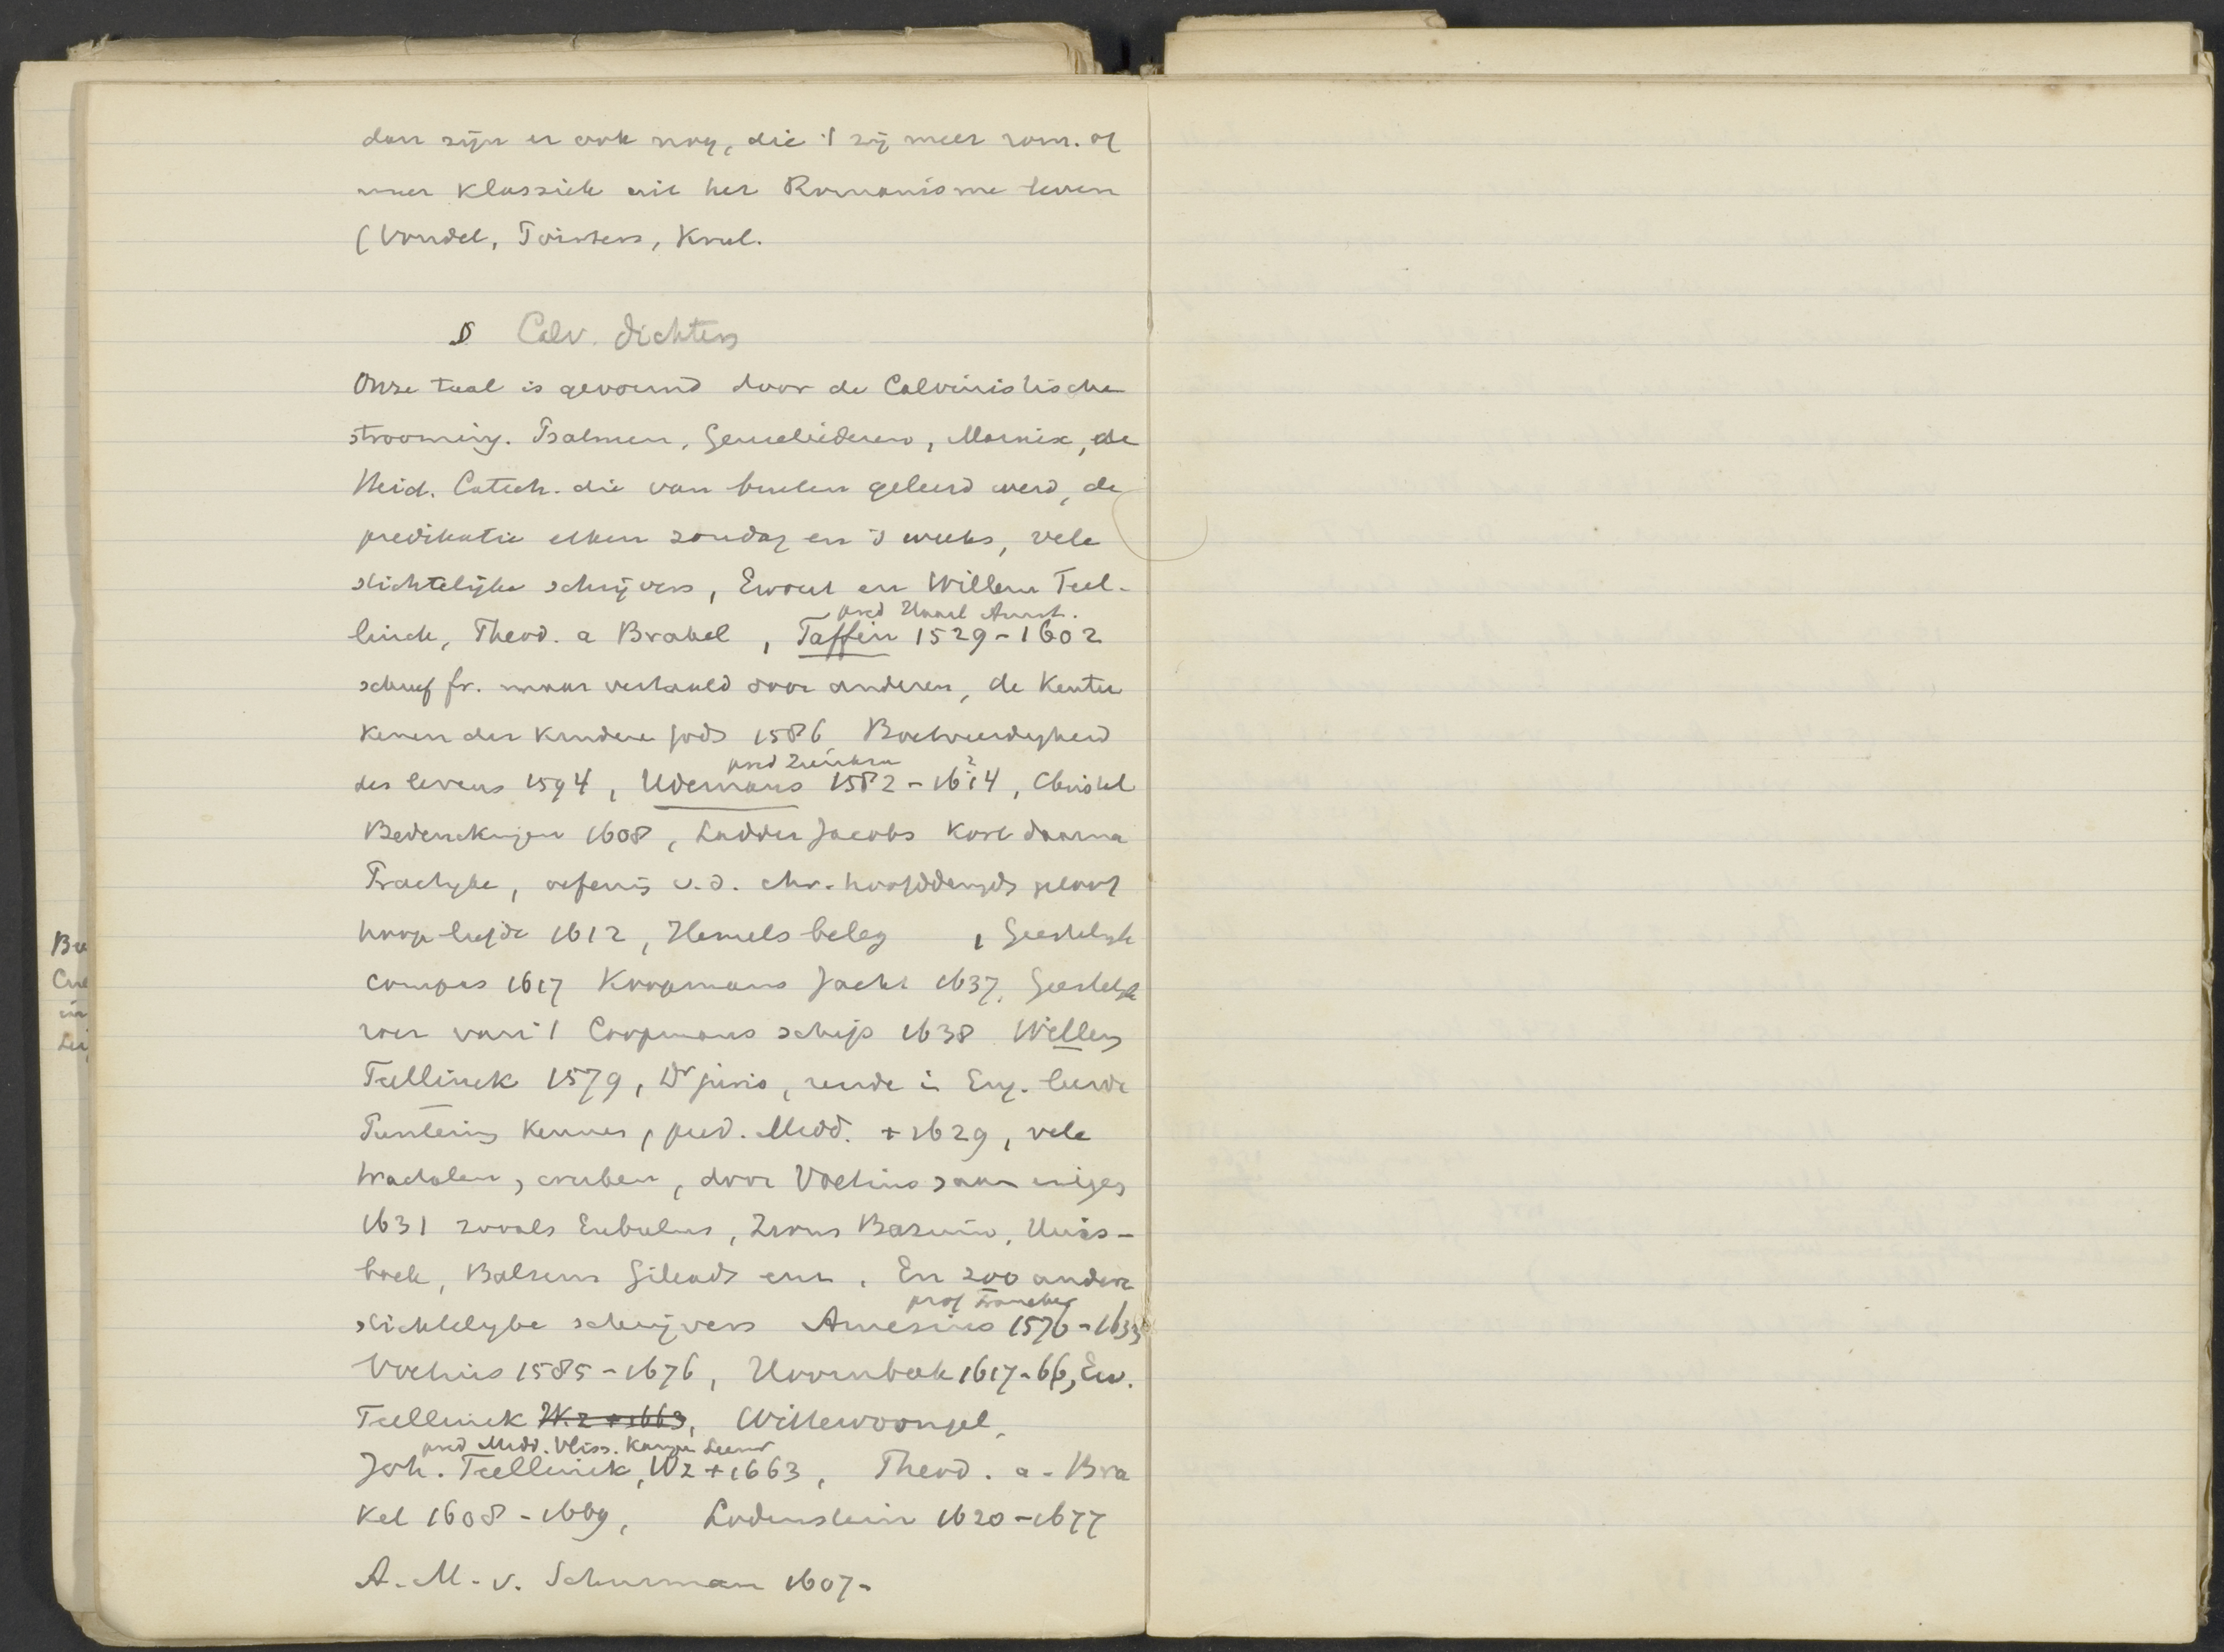 dan zijn er ook nog, die 't zij meer rom. of
meer klassiek uit het Romanisme leven
(Vondel, Poirters, Krul.
D Calv. dichters
Onze taal is gevormd door de Calvinistische
strooming. Psalmen, Geuseliederen, Marnix, de
Heid. Catech. die van buiten geleerd werd, de
predikatie elken zondag en 's weeks, vele
stichtelijke schrijvers, Ewout en Willem Teel-
pred Haarl Amst.
linck, Theod. a Brakel, Taffin 1529-1602
schreef fr. maar vertaald door anderen, de Kentee
kenen der kinderen Gods 1586, Boetveerdigheid
pred Zierikzee
des levens 1594, Udemans 1582-16?4, Christel
Bedenckingen 1608, Ladder Jacobs kort daarna
Practijke, oefenig v.d. chr. hoofddeugds geloof
hoop liefde 1612, Hemels beleg , Geestelijk
compas 1617 Koopmans Jacht 1637, Geestelijk
roer van 't Coopmans schip 1638 Willem
Teellinck 1579, Dr juris, reisde in Eng. leerde
Puriteins kennen, pred. Midd. + 1629, vele
tractaten, werken, door Voetius saam
1631 zooals Eubulus, Zions Basuin, Huis-
boek, Balsem Gileads enz. En 200 andere
prof Franeker
stichtelijke schrijvers Amesius 1576-1633
Voetius 1585-1676, Hoornbeek 1617-66, Ew.
Teellinck W.z +1663, Wittewrongel,
pred Midd. Vliss. Kampen Leeuw
Joh. Teellinck, Wz +1663, Theod. a-Bra
kel 1608-1669, Lodenstein 1620-1677
A.-M.-v. Schurman 1607-
Cue
in